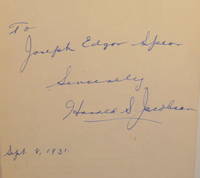 To
Joseph Edgar Spear
Sincerely
Harold S. Jacobson
Sept. 8, 1931.